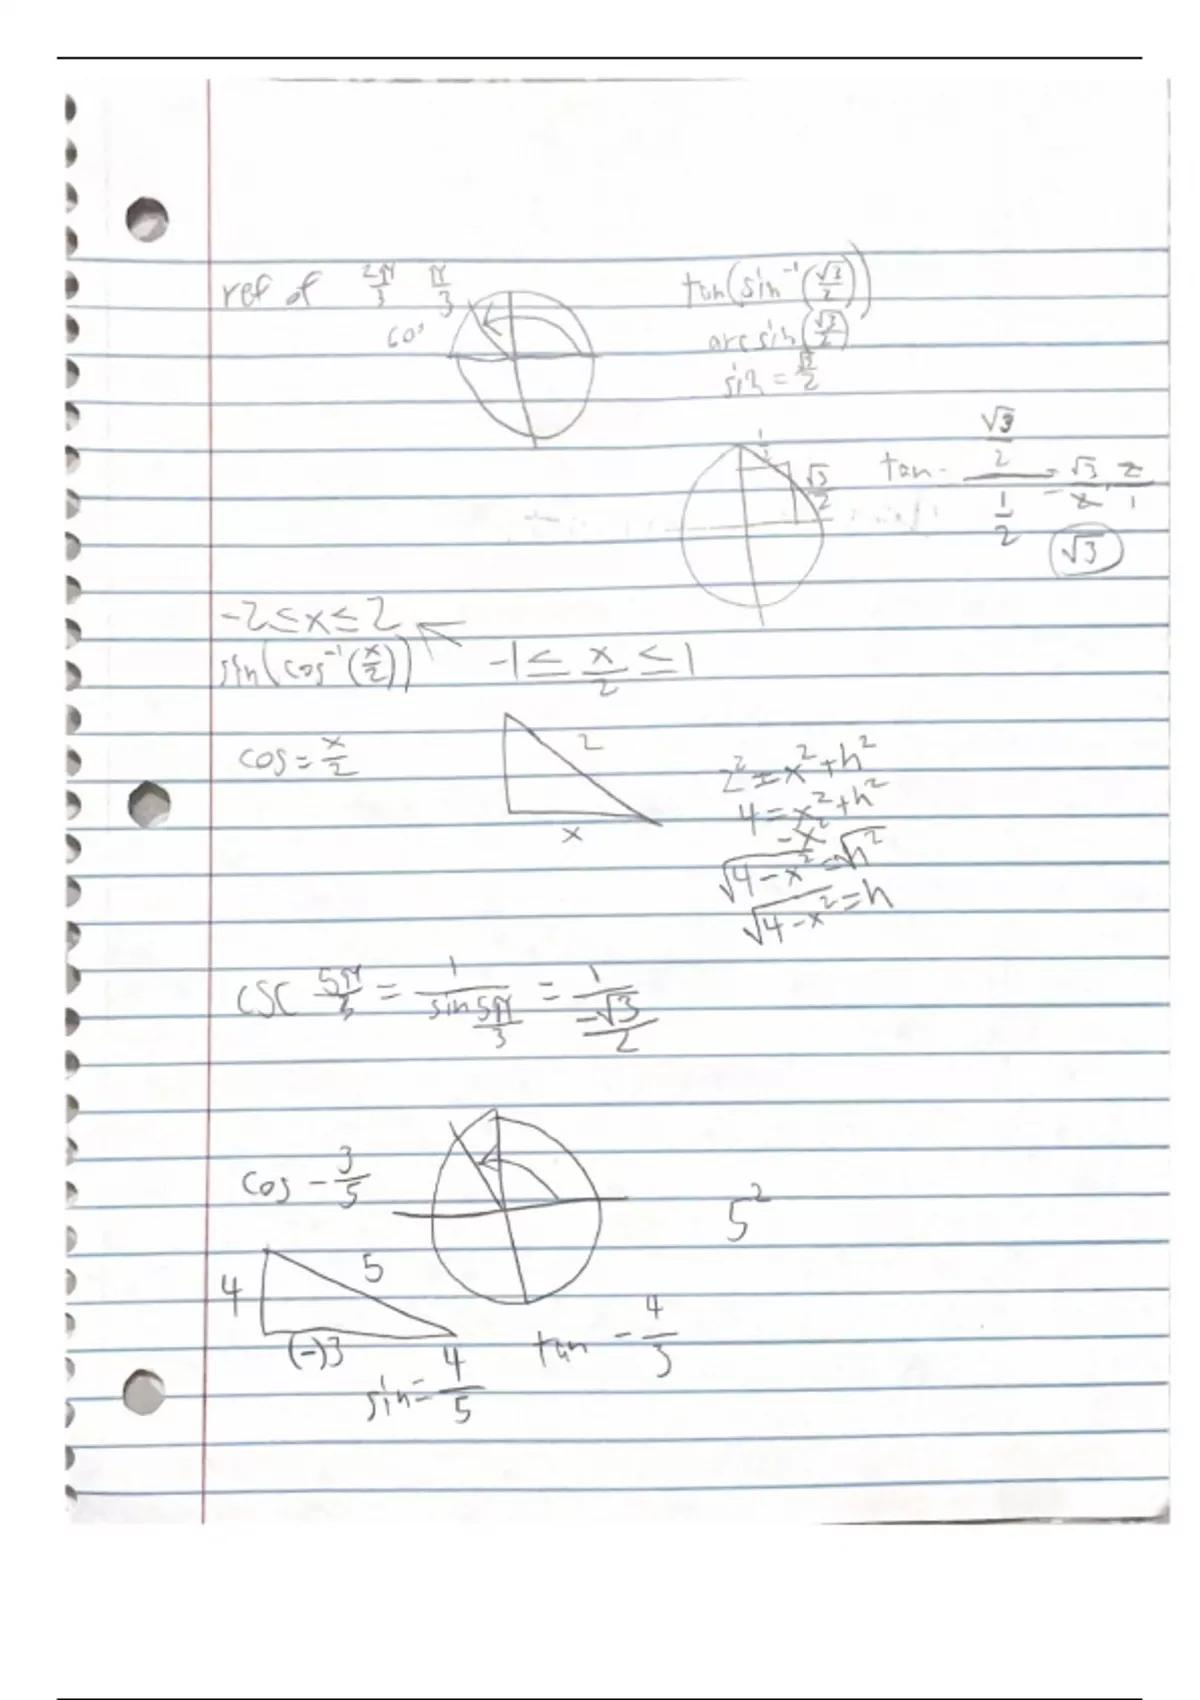 ref of 2π/3 π/3
60°
tan(sin⁻¹(√3/2))
arcsin(√3/2)
sin = √3/2
1/2
√3/2
tan - (√3/2)/(1/2) = √3/2 · 2/1
√3
-2 ≤ x ≤ 2
sin(cos⁻¹(x/2))
-1 ≤ x/2 ≤ 1
cos = x/2
2
x
2² = x² + h²
4 = x² + h²
-x²
√4-x² = √h²
√4-x² = h
csc 5π/3 = 1/sin 5π/3 = 1/(-√3/2)
cos - 3/5
5²
4
5
(-)3
sin = 4/5
tan - 4/3